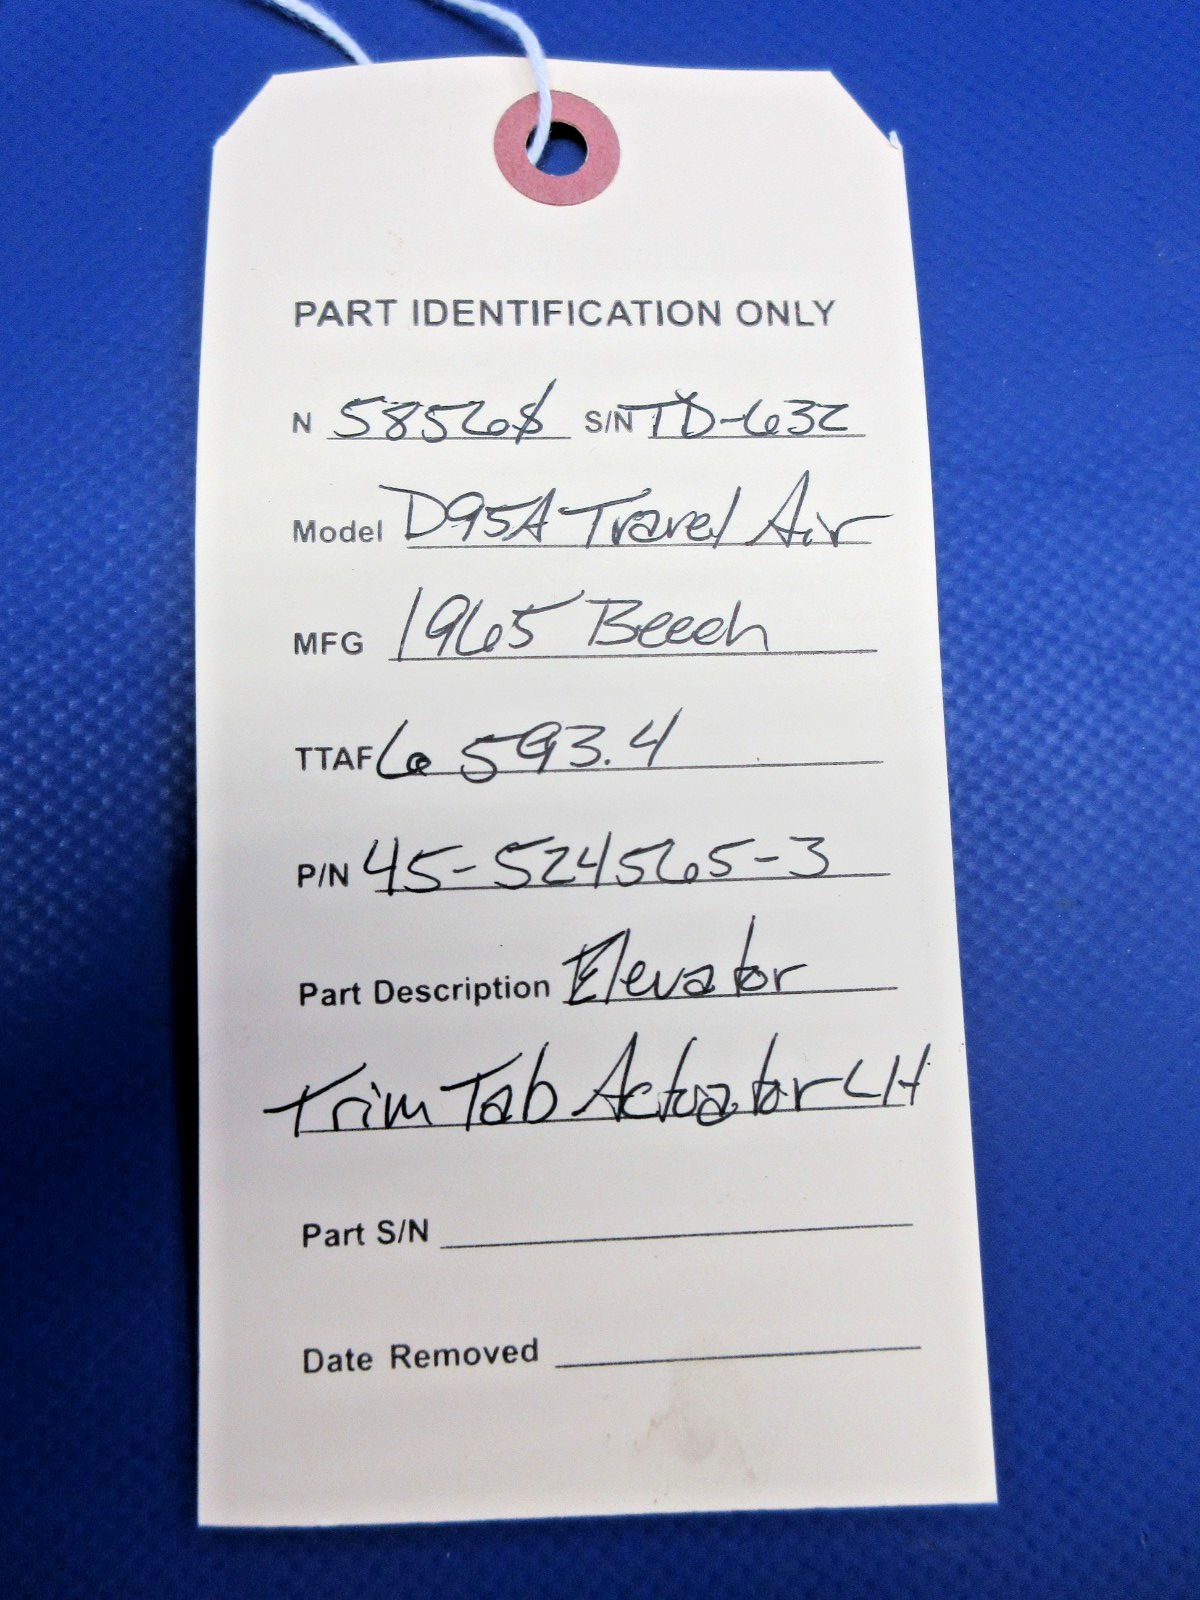 PART IDENTIFICATION ONLY
N 5856S S/N TD-632
Model D95A Travel Air
MFG 1965 Beech
TTAF 6 593.4
P/N 45-524565-3
Part Description Elevator
Trim Tab Actuator LH
Part S/N
Date Removed